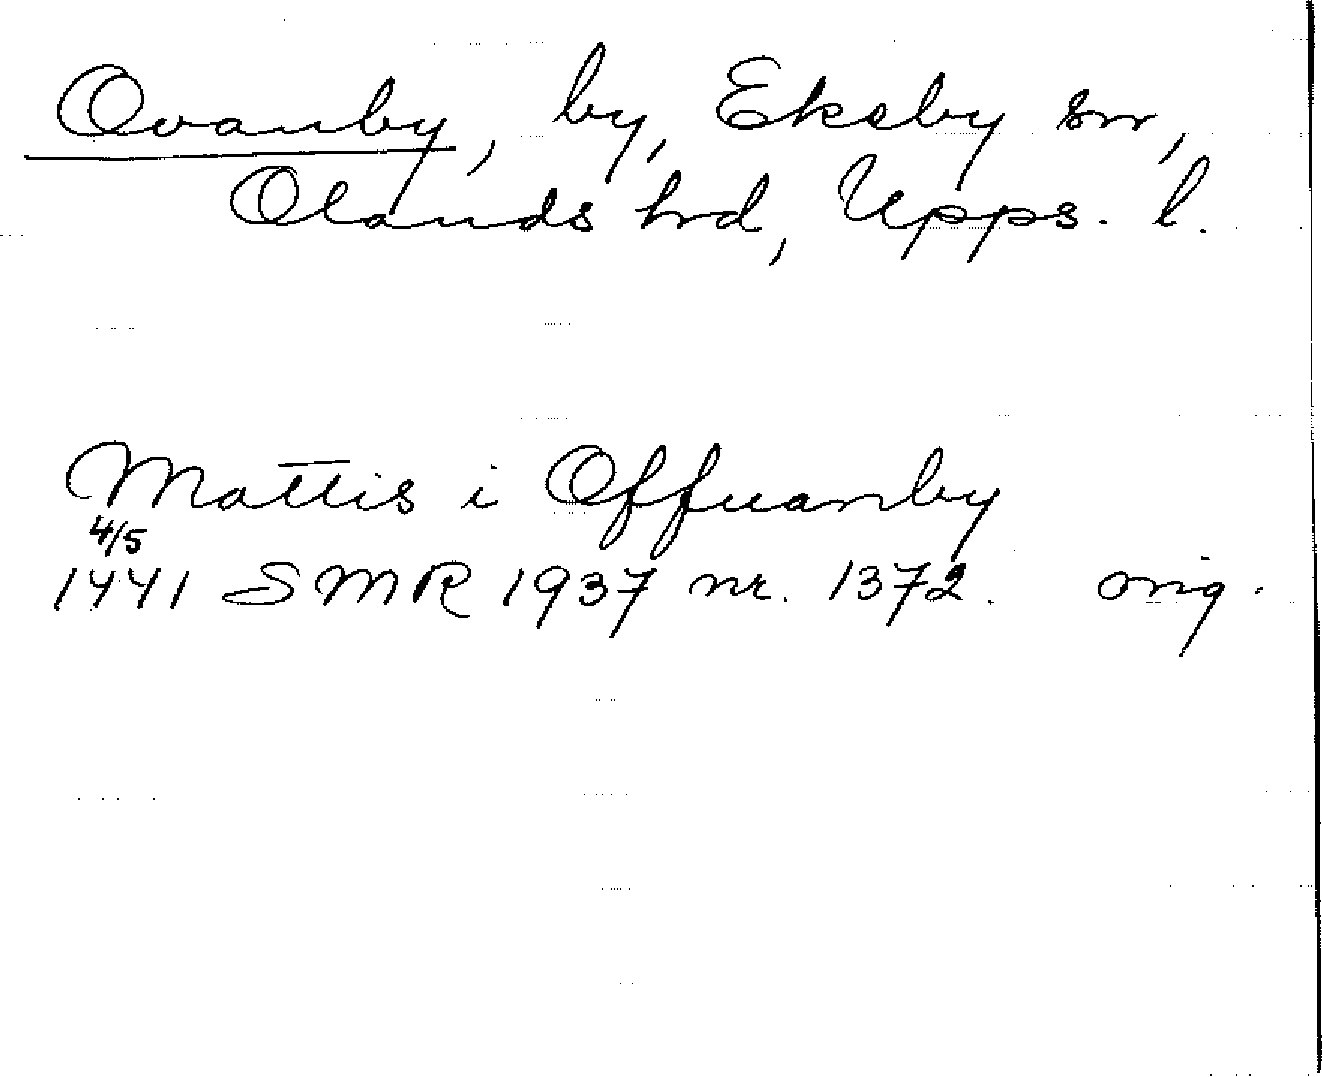 Ovanby, by, Eksby sn,
Olands hrd, Upps. l.
Mattis i Offuanby
4/5
1441 SMR 1937 nr. 1372. orig.